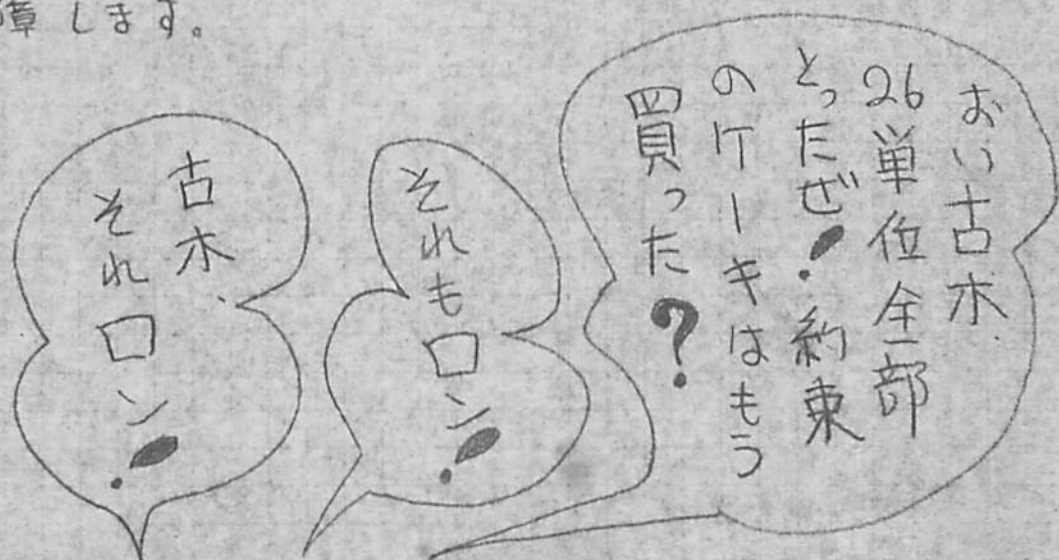 障します。
おい古木、
26単位全部
とったぜ!約束
のケーキはもう
買った?
それもロン!
古木、
それロン!